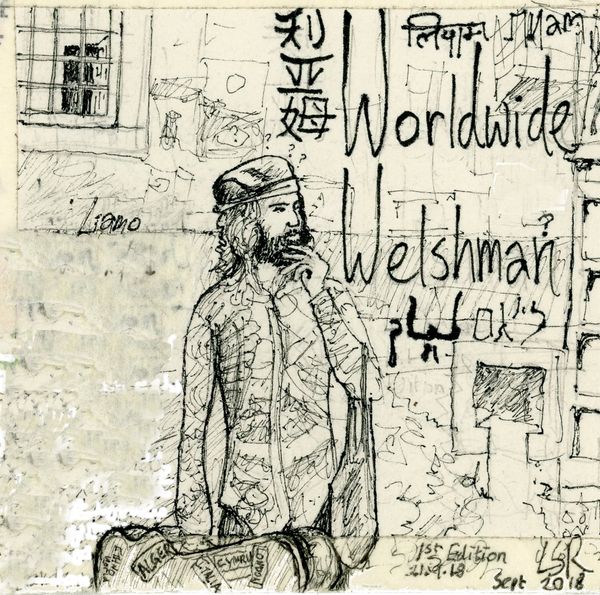 利亚姆
लियाम
Worldwide
Welshman
?
ليام
ליאם
Liamo
ALGER
ITALIA
CYMRU
1st Edition
21.9.18
LSR
Sept 2018